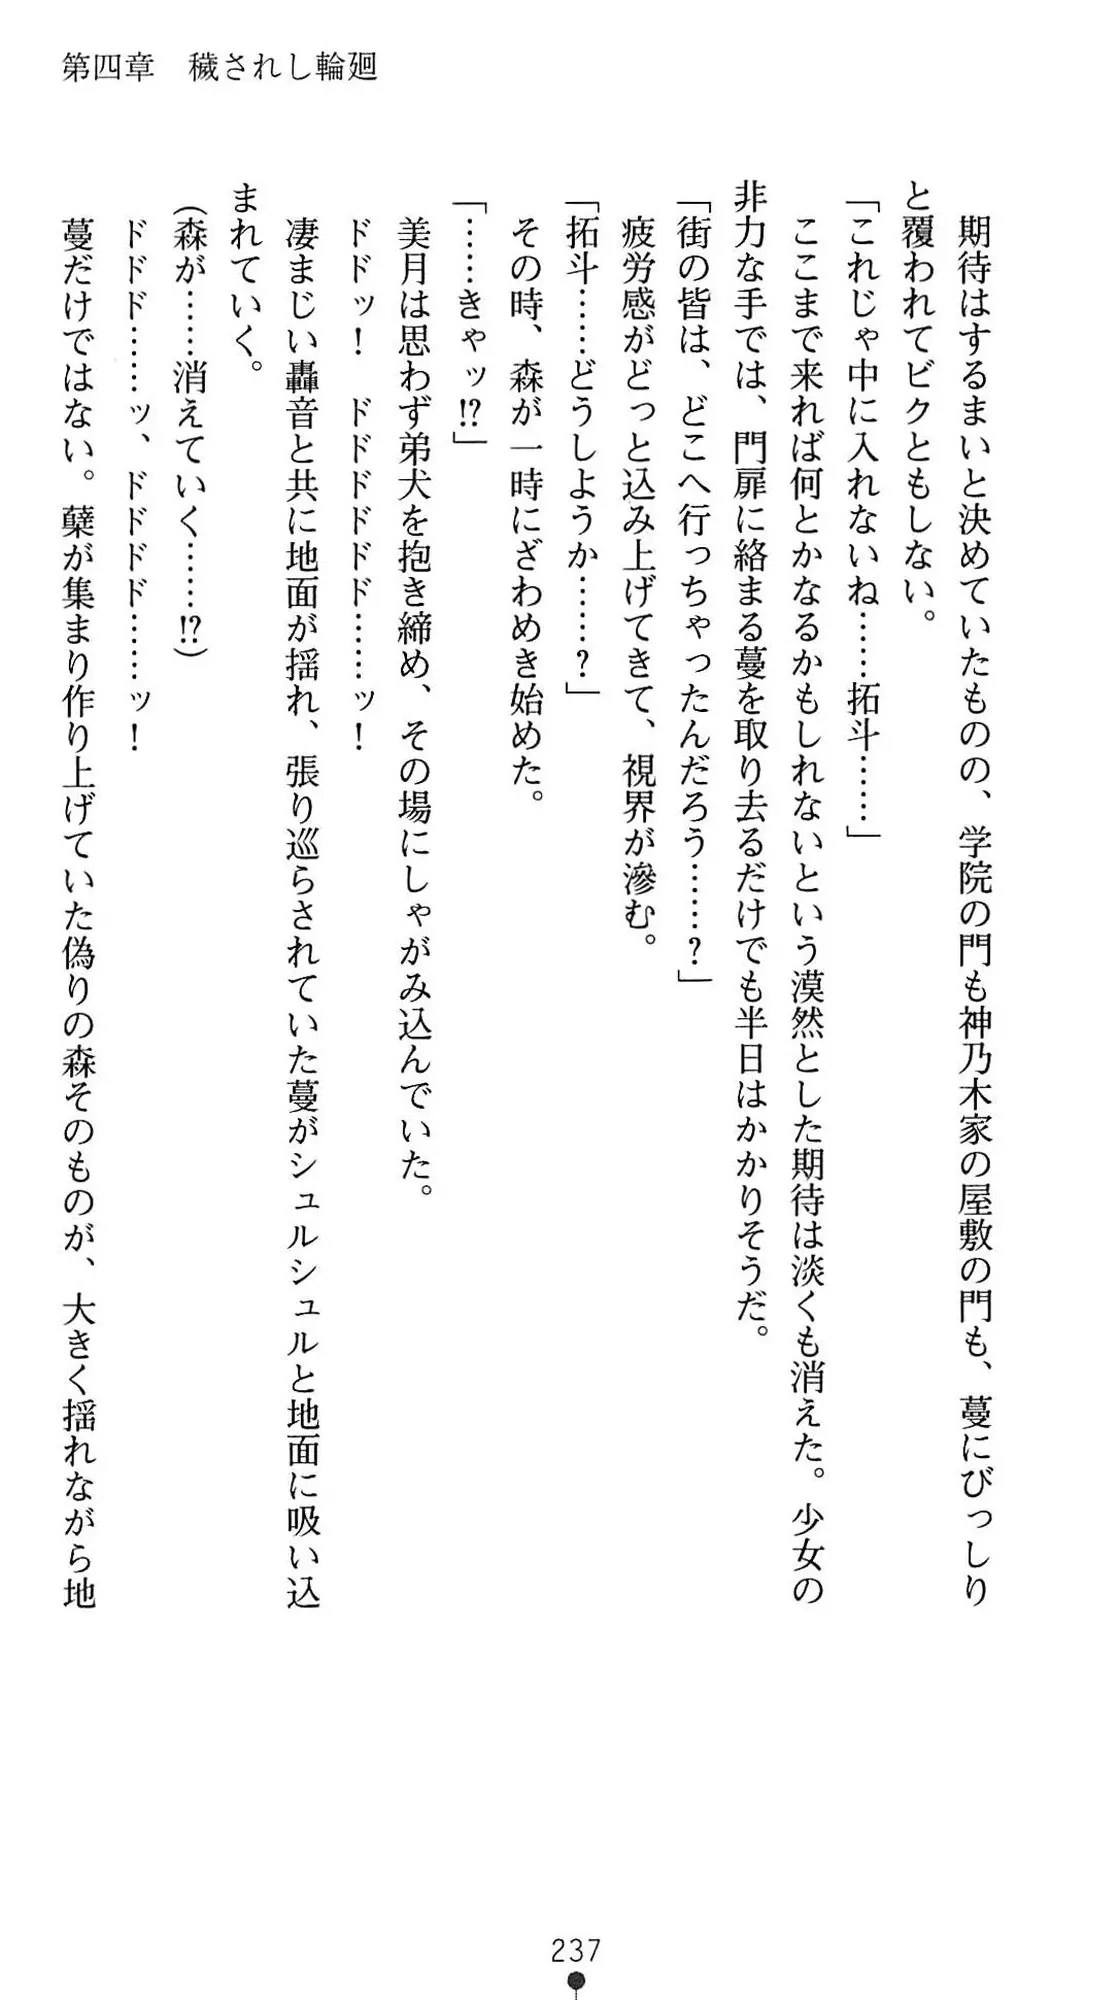 第四章　穢されし輪廻
　期待はするまいと決めていたものの、学院の門も神乃木家の屋敷の門も、蔓にびっしり
と覆われてビクともしない。
「これじゃ中に入れないね……拓斗……」
　ここまで来れば何とかなるかもしれないという漠然とした期待は淡くも消えた。少女の
非力な手では、門扉に絡まる蔓を取り去るだけでも半日はかかりそうだ。
「街の皆は、どこへ行っちゃったんだろう……？」
　疲労感がどっと込み上げてきて、視界が滲む。
「拓斗……どうしようか……？」
　その時、森が一時にざわめき始めた。
「……きゃッ!?」
　美月は思わず弟犬を抱き締め、その場にしゃがみ込んでいた。
　ドドッ！　ドドドドドド……ッ！
　凄まじい轟音と共に地面が揺れ、張り巡らされていた蔓がシュルシュルと地面に吸い込
まれていく。
（森が……消えていく……!?）
　ドドド……ッ、ドドドド……ッ！
　蔓だけではない。蘖が集まり作り上げていた偽りの森そのものが、大きく揺れながら地
237